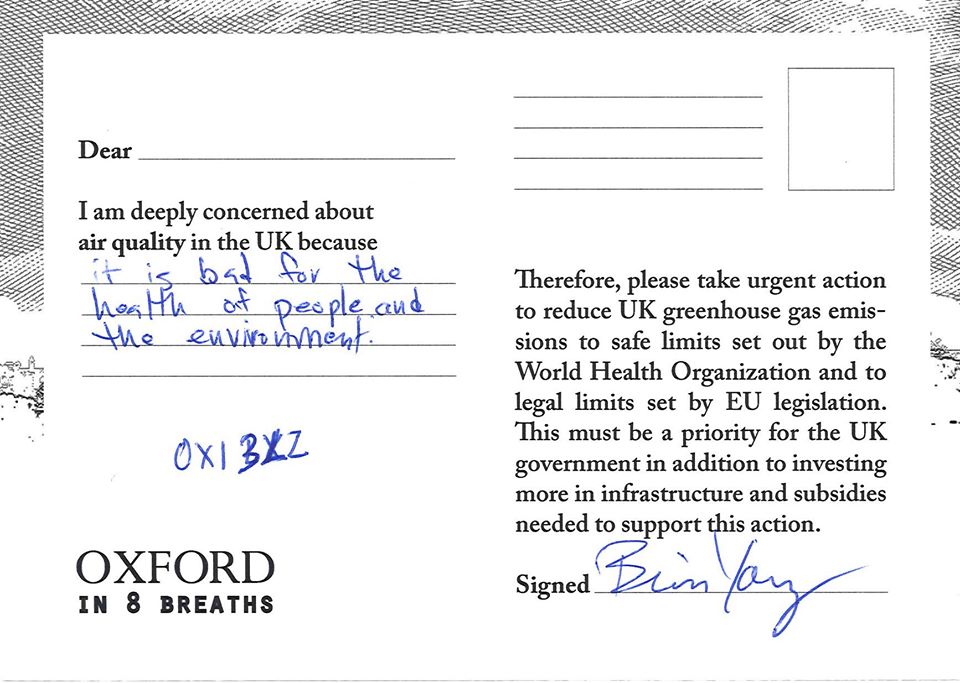 Dear
I am deeply concerned about
air quality in the UK because
it is bad for the
health of people and
the environment.
OX1
OXFORD
IN 8 BREATHS
Therefore, please take urgent action
to reduce UK greenhouse gas emis-
sions to safe limits set out by the
World Health Organization and to
legal limits set by EU legislation.
This must be a priority for the UK
government in addition to investing
more in infrastructure and subsidies
needed to support this action.
Signed